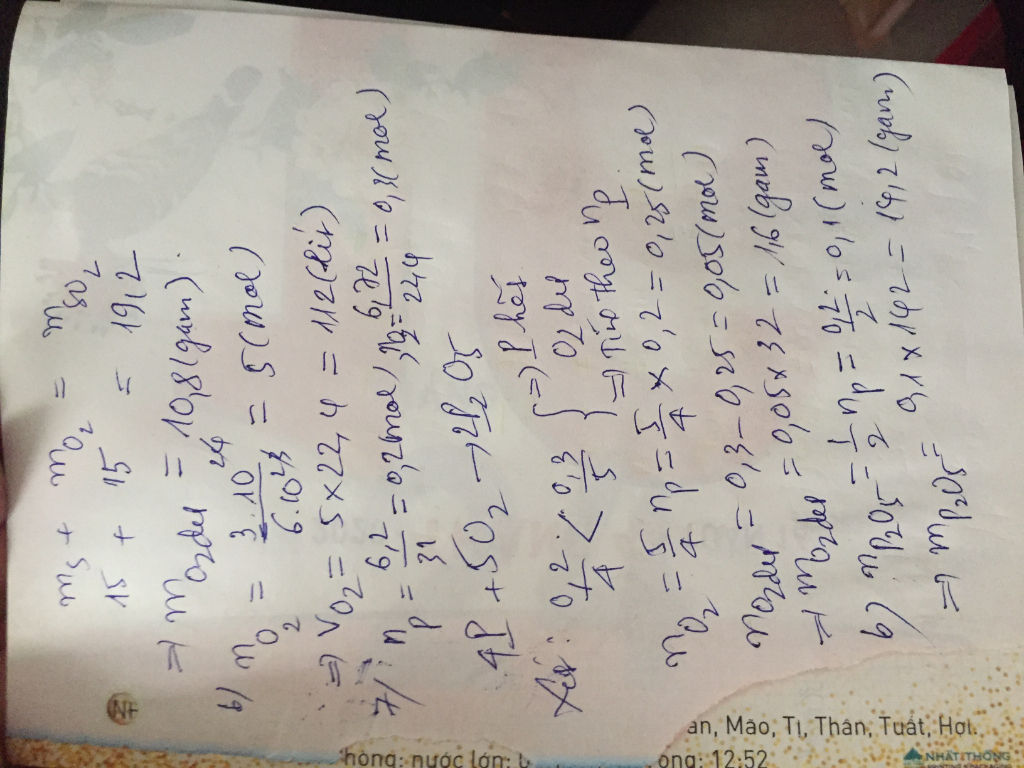 mS + mO2 = mSO2
15 + 15 = 19,2
=> mO2 dư = 10,8 (gam)
b) nO2 = 3.10^24 / 6.10^23 = 5 (mol)
=> VO2 = 5 x 22,4 = 112 (lít)
7) nP = 6,2/31 = 0,2 mol, nO2 = 6,72/22,4 = 0,3 (mol)
4P + 5O2 → 2P2O5
Xét: 0,2/4 < 0,3/5 { => P hết
} O2 dư
=> Tính theo nP
nO2 = 5/4 nP = 5/4 x 0,2 = 0,25 (mol)
nO2 dư = 0,3 - 0,25 = 0,05 (mol)
=> mO2 dư = 0,05 x 32 = 1,6 (gam)
b) nP2O5 = 1/2 nP = 0,2/2 = 0,1 (mol)
=> mP2O5 = 0,1 x 142 = 14,2 (gam)
NT
ần, Mão, Tị, Thân, Tuất, Hợi.
hòng: nước lớn:
ong: 12:52
NHẤT THỐNG